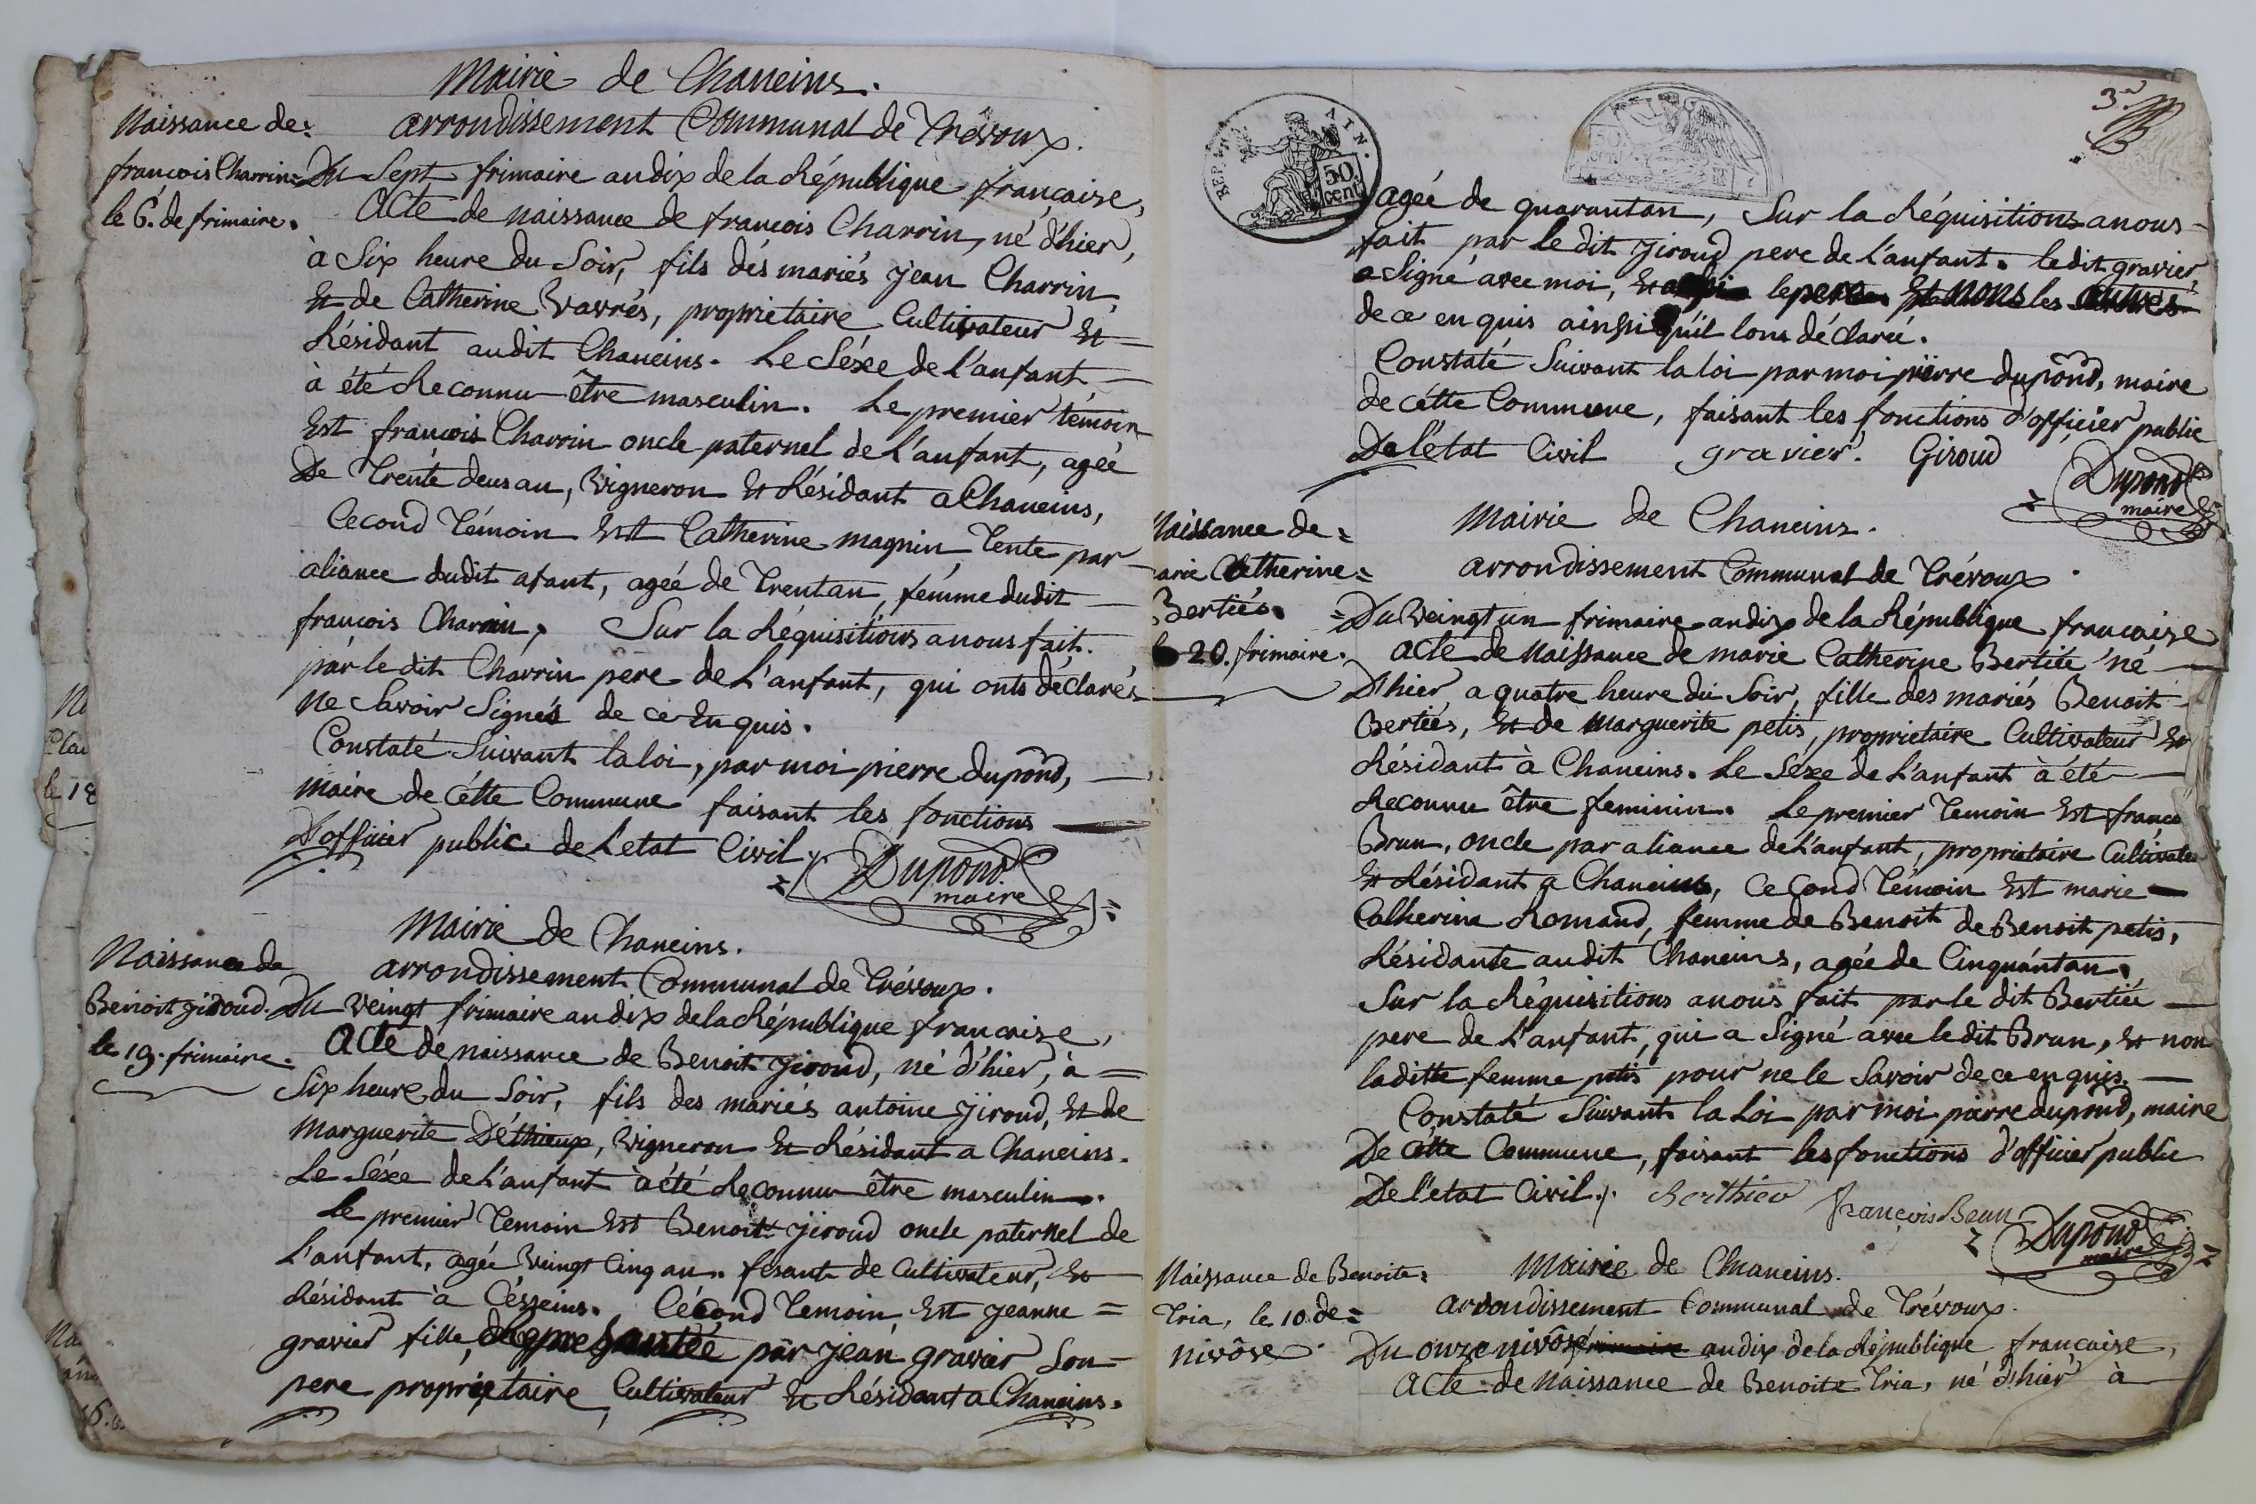 Mairie de Chaneins.
arrondissement Communal de Trévoux.
Naissance de
françois Charrin
le 6. de frimaire.
Du Sept frimaire an dix de la République française,
Acte de naissance de françois Charrin, né d'hier,
à Six heure du Soir, fils dés mariés jean Charrin
Et de Catherine Vavrés, proprietaire Cultivateur Et
Résidant audit Chaneins. Le Séxe de l'anfant
à été Reconnu être masculin. Le premier témoin
Est françois Charrin oncle paternel de l'anfant, agée
De Trente deus an, Vigneron Et Résidant a Chaneins,
Cecond Témoin Est Catherine magnin, Tente par
aliance dudit afant, agée de Trentan, fémme dudit
françois Charrin. Sur la Réquisitions a nous fait
par le dit Charrin pere de L'anfant, qui onts déclarés
ne Savoir Signés de ce En quis.
Constaté Suivant la loi, par moi pierre dupond,
maire de cétte Commune faisant les fonctions
D'officier public de Letat Civil
Dupond
maire
Mairie de Chaneins.
arrondissement Communal de Trévoux.
Naissance de
Benoit jiroud
le 19. frimaire.
Du veingt frimaire an dix de la République francaise,
Acte de naissance de Benoit jiroud, né d'hier, à
Six heure du Soir, fils des mariés antoine jiroud, Et de
Marguerite Déthieux, Vigneron Et Résidant a Chaneins.
Le Séxe de L'anfant à été Reconnu être masculin.
Le premier Temoin Est Benoit jiroud oncle paternel de
L'anfant, agée Veingt Cinq an. fesant de Cultivateur, Et
Résidant à Césseins. Cécond Temoin Est jeanne
gravier fille, par jean gravier Son
pere propriétaire Cultivateur Et Résidant a Chaneins.
REP. FRA
AIN.
50
cent
3
agée de quarantan, Sur la Réquisitions a nous
fait par le dit jiroud pere de L'anfant. le dit gravier
a Signé avec moi, le pere Et nons les autres
de ce en quis ainssi qu'il lons déclarée.
Constaté Suivant la loi par moi pierre dupond, maire
de cétte Commune, faisant les fonctions d'officier public
De l'état Civil gravier. Giroud
Dupond
maire
Mairie de Chaneins.
arrondissement Communal de Trévoux.
Naissance de
arie Catherine
Bertiés.
20. frimaire.
Du Veingt un frimaire an dix de la République francaise
acte de Naissance de marie Catherine Bertiée né
D'hier a quatre heure du Soir, fille des mariés Benoit
Bertiés, Et de Marguerite petis, proprietaire Cultivateur Et
Résidant à Chaneins. Le Séxe de L'anfant à été
Reconnu être feminin. Le premier Temoin Est franco
Brun, oncle par aliance de L'anfant, propriétaire Cultivate
Et Résidant a Chaneins, Cecond Témoin Est marie
Catherine Romand, femme de Benoit de Benoit petis,
Résidante audit Chaneins, agée de Cinquántan,
Sur la Réquisitions a nous fait par le dit Bertiée
pere de L'anfant, qui a Signé avec le dit Brun, Et non
laditte femme petis pour ne le Savoir de ce en quis.
Constaté Suivant la Loi par moi pierre dupond, maire
De cétte Commune, faisant les fonctions d'officier public
De l'état Civil. Berthier françois Beun
Dupond
maire
Mairie de Chaneins.
arrondissement Communal de Trévoux.
Naissance de Benoite
Tria, le 10 de
nivôse
Du onze nivôse an dix de la République francaise,
Acte de Naissance de Benoite Tria, né d'hier à